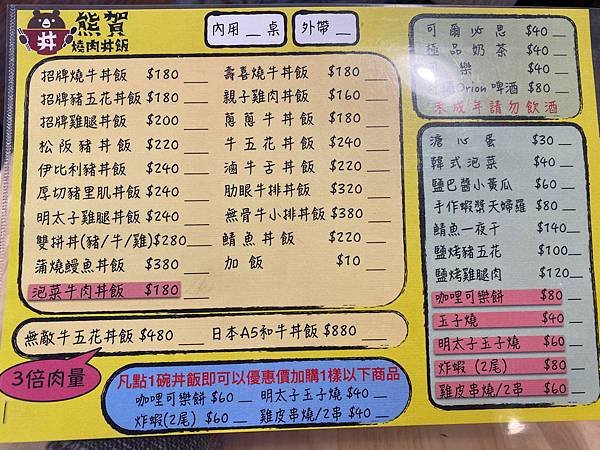 丼
熊賀
燒肉丼飯
內用__桌
外帶__
招牌燒牛丼飯 $180
招牌豬五花丼飯 $180
招牌雞腿丼飯 $200
松阪豬丼飯 $220
伊比利豬丼飯 $240
厚切豬里肌丼飯 $240
明太子雞腿丼飯 $240
雙拼丼(豬/牛/雞) $280
蒲燒鰻魚丼飯 $380
泡菜牛肉丼飯 $180
壽喜燒牛丼飯 $180
親子雞肉丼飯 $160
蔥蔥牛丼飯 $180
牛五花丼飯 $240
滷牛舌丼飯 $220
肋眼牛排丼飯 $320
無骨牛小排丼飯 $380
鯖魚丼飯 $220
加飯 $10
無敵牛五花丼飯 $480
日本A5和牛丼飯 $880
3倍肉量
凡點1碗丼飯即可以優惠價加購1樣以下商品
咖哩可樂餅 $60
明太子玉子燒 $40
炸蝦(2尾) $60
雞皮串燒/2串 $40
可爾必思 $40
極品奶茶 $40
樂 $40
Orion啤酒 $80
未成年請勿飲酒
溏心蛋 $30
韓式泡菜 $40
鹽巴醬小黃瓜 $60
手作蝦漿天婦羅 $80
鯖魚一夜干 $140
鹽烤豬五花 $100
鹽烤雞腿肉 $120
咖哩可樂餅 $80
玉子燒 $40
明太子玉子燒 $60
炸蝦(2尾) $80
雞皮串燒/2串 $60